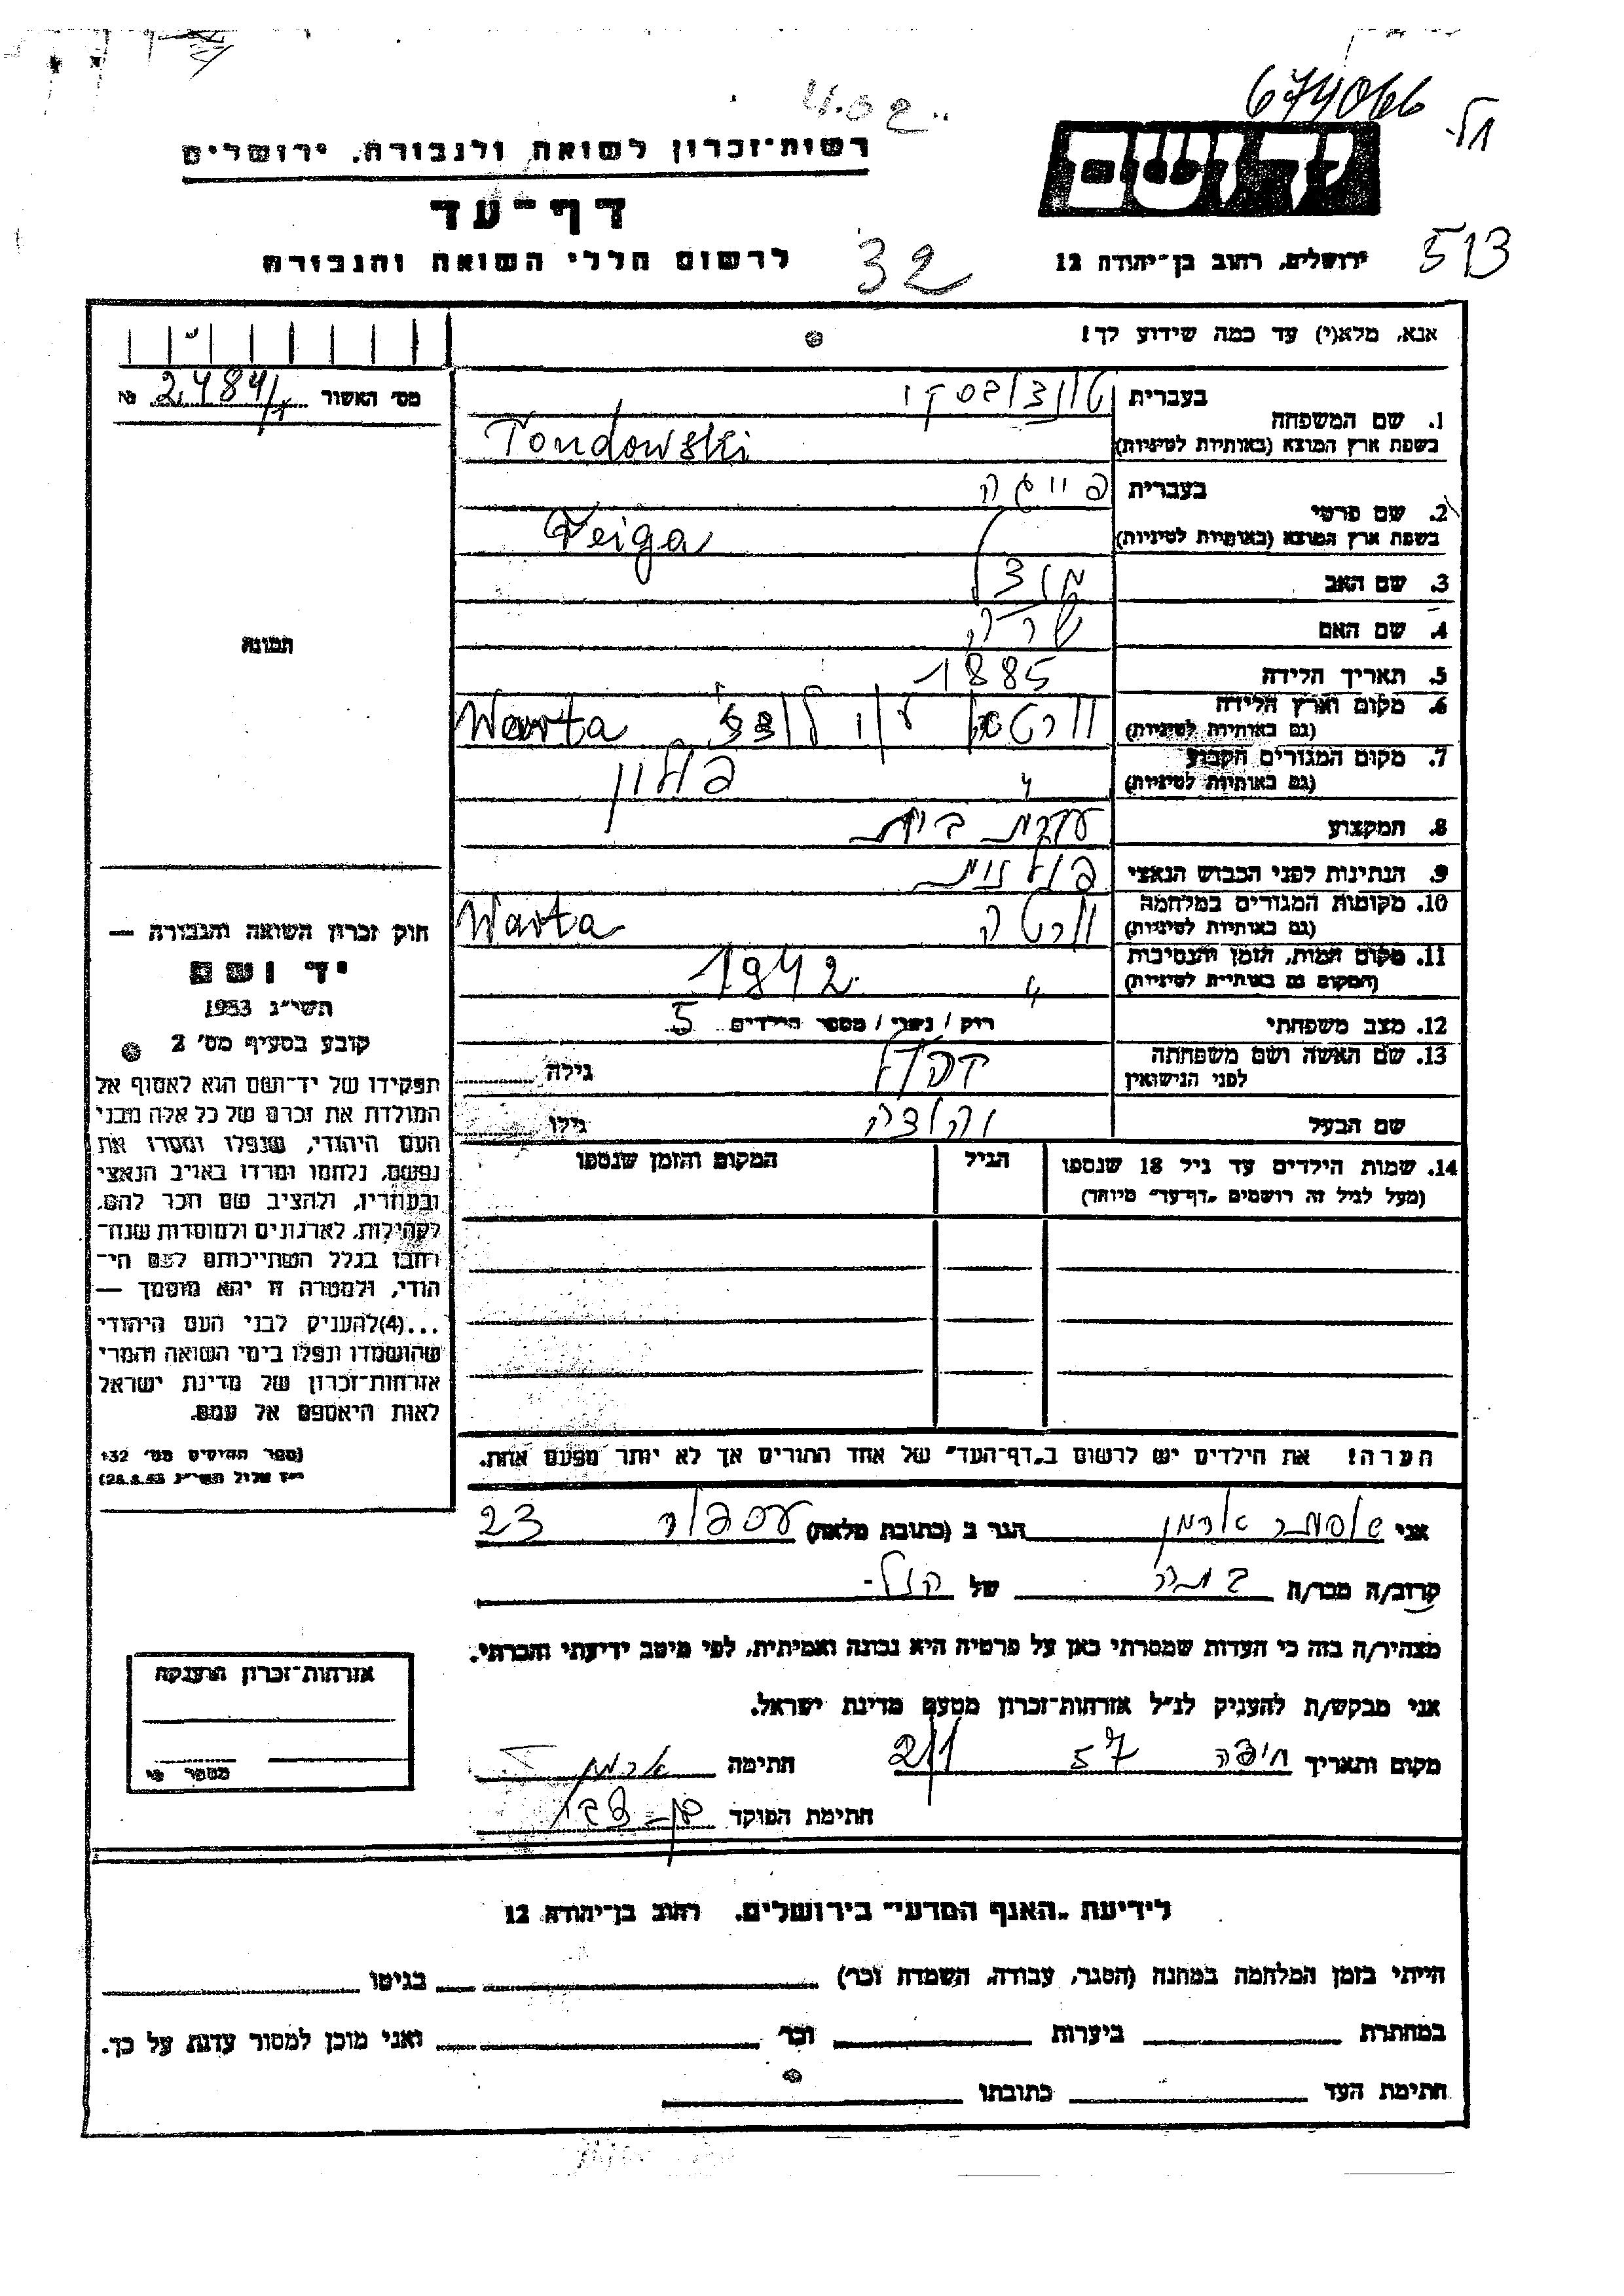 674066
4.02
יד ושם
רשות־זכרון לשואה ולגבורה, ירושלים
דף־עד
לרשום חללי השואה והגבורה
32
ירושלים, רחוב בן־יהודה 12
513
אנא, מלא(י) עד כמה שידוע לך!
מס׳ האשור 2484/1 №
1. שם המשפחה
בעברית טונדובסקי
בשפת ארץ המוצא (באותיות לטיניות) Tondowski
2. שם פרטי
בעברית פייגה
בשפת ארץ המוצא (באותיות לטיניות) Feiga
3. שם האב
4. שם האם שרה
5. תאריך הלידה 1885
6. מקום וארץ הלידה
(גם באותיות לטיניות) Warta
7. מקום המגורים הקבוע
(גם באותיות לטיניות) פולין
8. המקצוע עקרת בית
9. הנתינות לפני הכבוש הנאצי פולנית
10. מקומות המגורים במלחמה
(גם באותיות לטיניות) ורטה Warta
11. מקום המות, הזמן והנסיבות
(המקום גם באותיות לטיניות) 1942
12. מצב משפחתי רוק / נשוי / מספר הילדים 5
13. שם האשה ושם משפחתה
לפני הנישואין גילה
שם הבעל גילו
14. שמות הילדים עד גיל 18 שנספו
(מעל לגיל זה רושמים „דף־עד״ מיוחד)
הגיל
המקום והזמן שנספו
הערה! את הילדים יש לרשום ב„דף־העד״ של אחד ההורים אך לא יותר מפעם אחת.
תמונה
חוק זכרון השואה והגבורה —
יד ושם
תשי״ג 1953
קובע בסעיף מס׳ 2
תפקידו של יד־ושם הוא לאסוף אל
המולדת את זכרם של כל אלה מבני
העם היהודי, שנפלו ומסרו את
נפשם, נלחמו ומרדו באויב הנאצי
ובעוזריו, ולהציב שם וזכר להם,
לקהילות, לארגונים ולמוסדות שנח־
רבו בגלל השתייכותם לעם הי־
הודי, ולמטרה זו יהא מוסמך —
...(4)להעניק לבני העם היהודי
שהושמדו ונפלו בימי השואה והמרי
אזרחות־זכרון של מדינת ישראל
לאות היאספם אל עמם.
(ספר החוקים מס׳ 132
י״ז אלול תשי״ג 28.8.53)
אני הגר ב (כתובת מלאה) 23
קרוב/ה מכר/ה של
מצהיר/ה בזה כי העדות שמסרתי כאן על פרטיה היא נכונה ואמיתית, לפי מיטב ידיעתי והכרתי.
אני מבקש/ת להעניק לנ״ל אזרחות־זכרון מטעם מדינת ישראל.
מקום ותאריך חיפה 57 2/1 חתימה
חתימת הפוקד
אזרחות־זכרון הוענקה
מספר
לידיעת „האגף המדעי״ בירושלים, רחוב בן־יהודה 12
הייתי בזמן המלחמה במחנה (הסגר, עבודה, השמדה וכו׳) בגיטו
במחתרת ביערות וכו׳ ואני מוכן למסור עדות על כך.
חתימת העד כתובתו